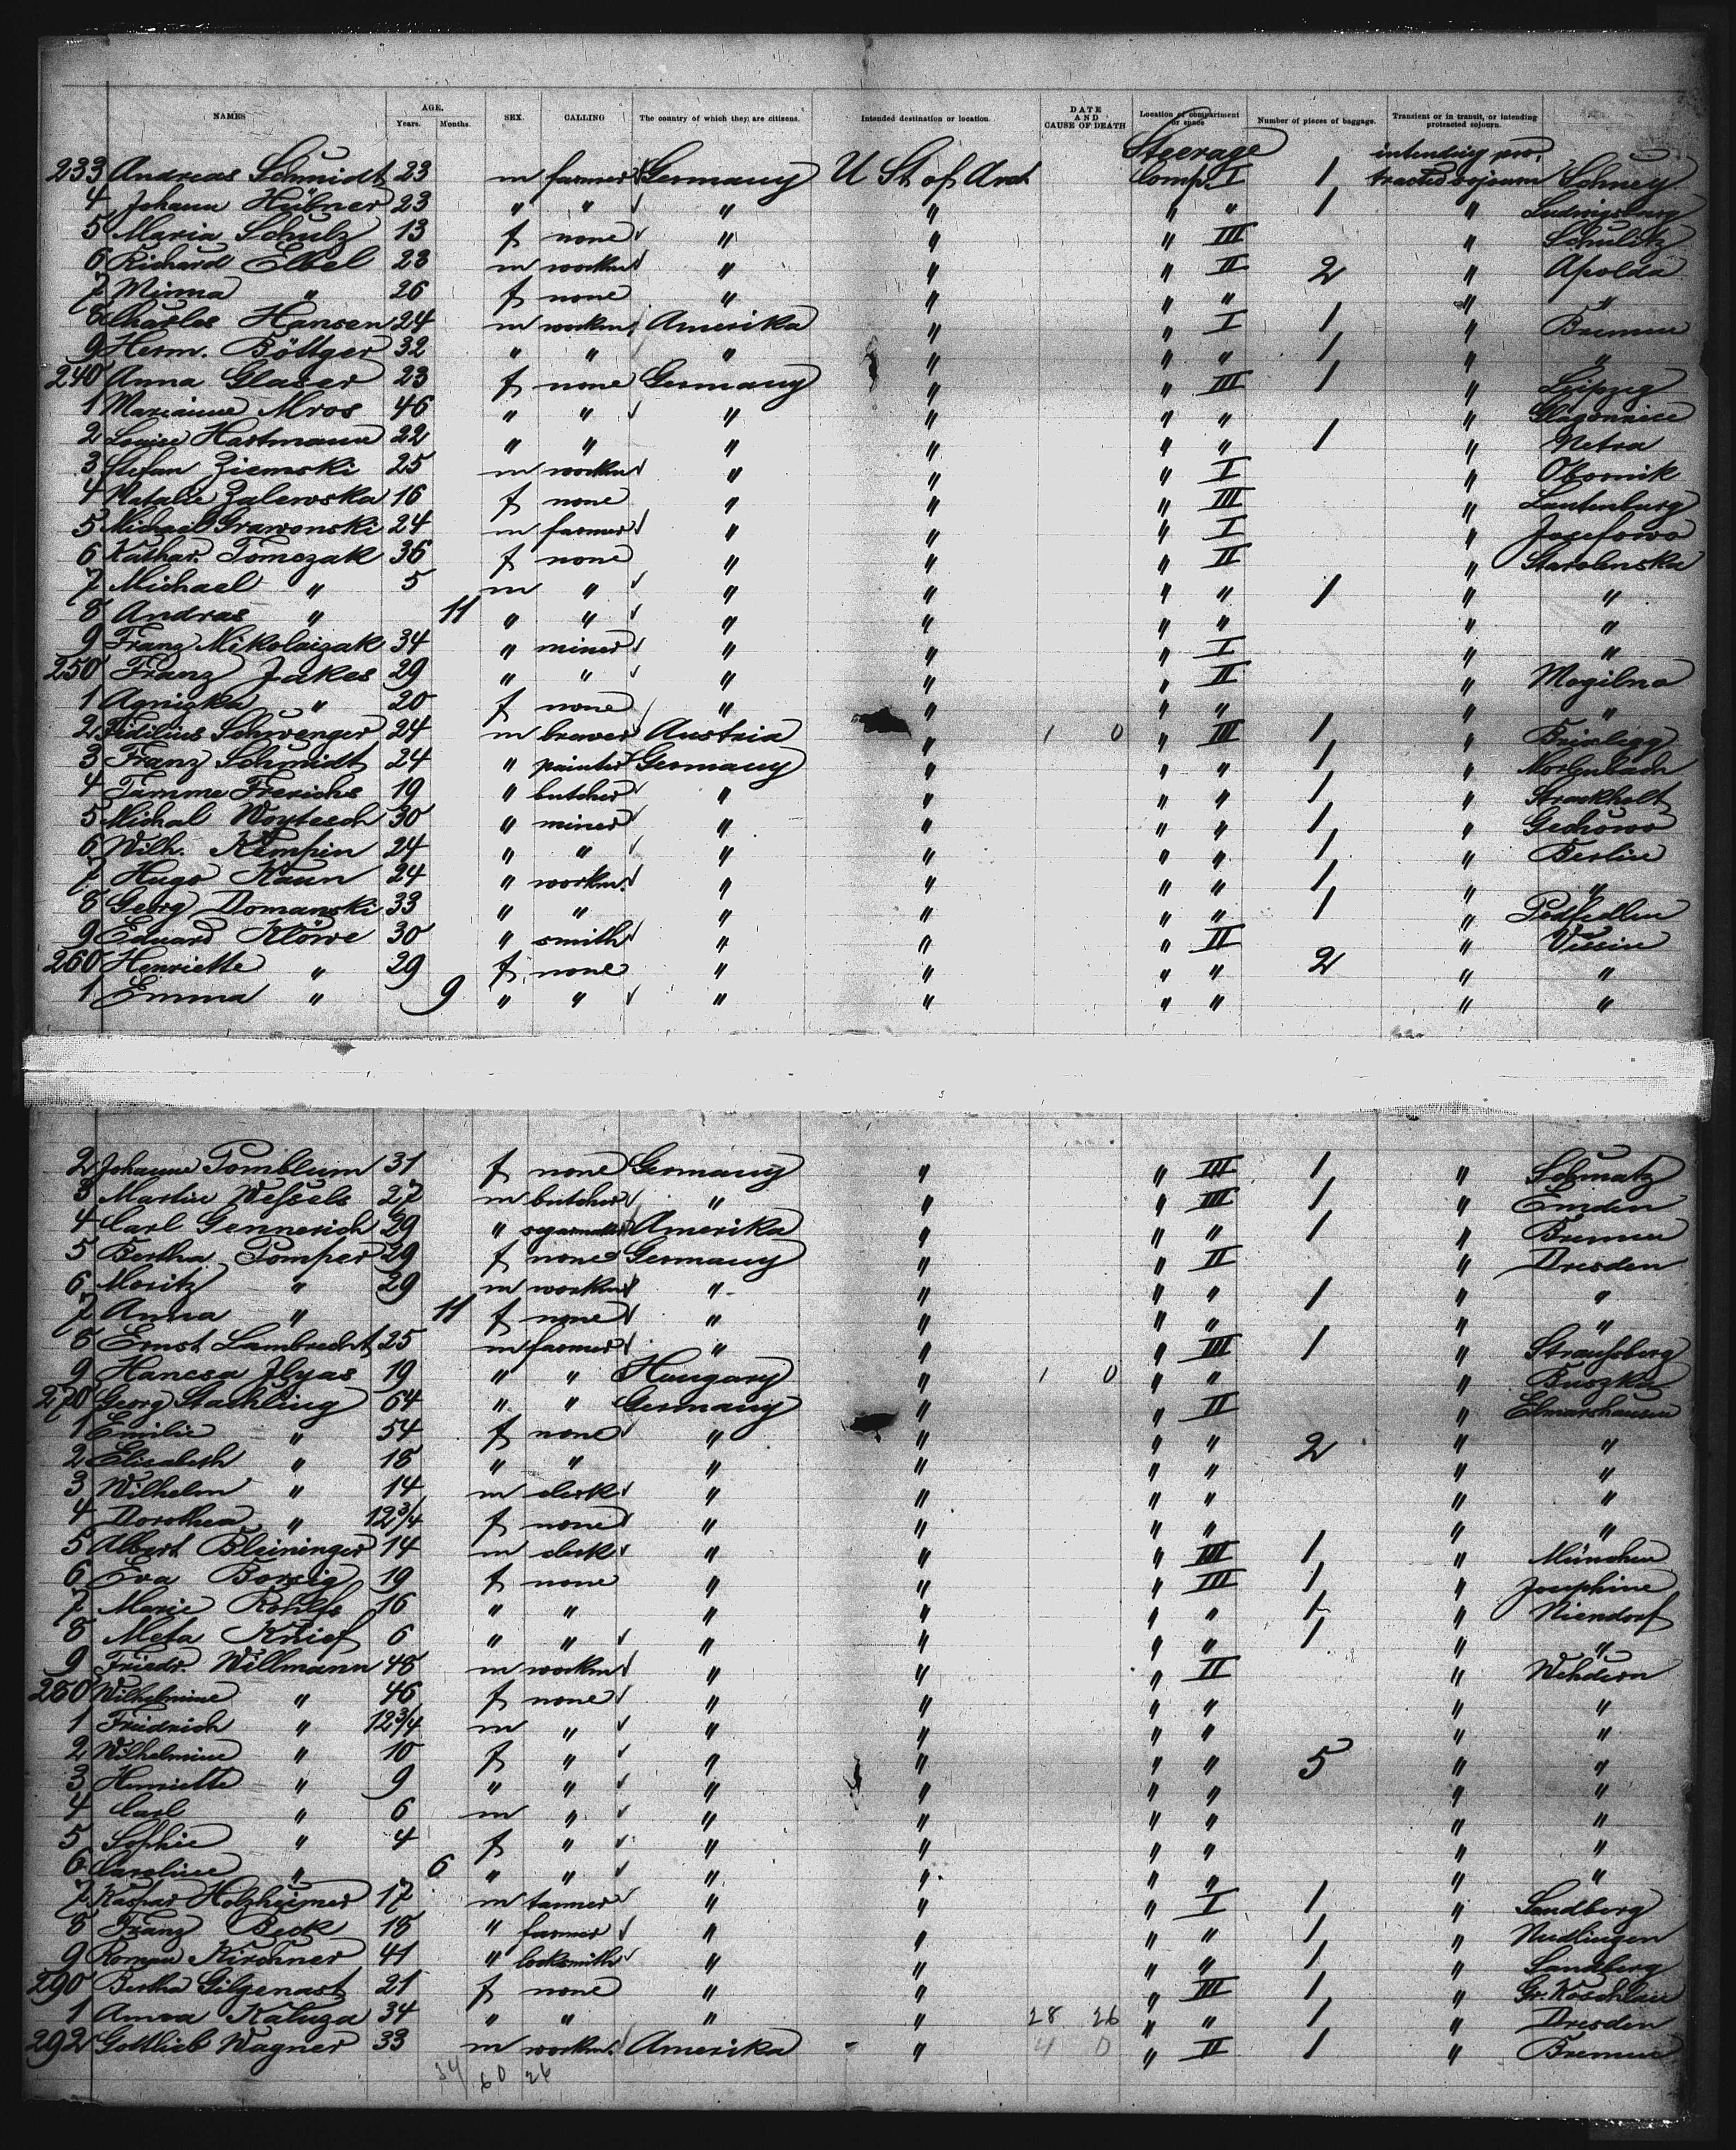 NAMES AGE. Years. Months. SEX. CALLING The country of which they are citizens. Intended destination or location. DATE AND CAUSE OF DEATH Location of compartment or space Number of pieces of baggage. Transient or in transit, or intending protracted sojourn.
Steerage intending pro-
233 Andreas Schmidt 23 m farmer Germany U St of Am Comp. I 1 tracted sojourn Schney
4 Johann Hübner 23 " " " " " " 1 " Ludwigsburg
5 Maria Schulz 13 f none " " " III " Schulitz
6 Richard Elbel 23 m workm " " " II 2 " Apolda
7 Minna " 26 f none " " " " " "
8 Charles Hansen 24 m workm. Amerika " " I 1 " Bremen
9 Herm. Böttger 32 " " " " " " 1 " "
240 Anna Glaser 23 f none Germany " " III 1 " Leipzig
1 Marianne Mros 46 " " " " " " "
2 Louise Hartmann 22 " " " " " " 1 " Netra
3 Stefan Ziemski 25 m workm " " " I " Obornik
4 Natalie Zalewska 16 f none " " " III " Lautenburg
5 Michael Grawonski 24 m farmer " " " I " Josefowo
6 Kathar. Tomczak 36 f none " " " II " Starolenska
7 Michael " 5 m " " " " " 1 " "
8 Andras " 11 " " " " " " " "
9 Franz Mikolaizak 34 " miner " " " I " "
250 Franz Jakes 29 " " " " " II " Mogilno
1 Agnizka " 20 f none " " " " " "
2 Fidilius Schwenger 24 m brewer Austria " 1 0 " III 1 " Brixlegg
3 Franz Schmidt 24 " painter Germany " " " 1 " Morlenbach
4 Tamme Frerichs 19 " butcher " " " " 1 " Strackholt
5 Michal Woytech 30 " miner " " " " 1 " Gechowo
6 Wilh. Kempin 24 " " " " " " 1 " Berlin
7 Hugo Kaun 24 " workm. " " " " 1 " "
8 Georg Domanski 33 " " " " " " 1 "
9 Eduard Klöwe 30 " smith " " " II " Vissin
260 Henriette " 29 f none " " " " 2 " "
1 Emma " 9 " " " " " " " "
2 Johanne Pomblum 31 f none Germany " " III 1 " Schmatz
3 Martin Wessels 27 m butcher " " " III 1 " Emden
4 Carl Gennerich 29 " Amerika " " " 1 " Bremen
5 Bertha Pomper 29 f none Germany " " II " Dresden
6 Moritz " 29 m workm " " " " 1 " "
7 Anna " 11 f none " " " " " "
8 Ernst Lambrecht 25 m farmer " " " III 1 " Straussberg
9 Hancsa Ilyas 19 " " Hungary " 1 0 " " " Buszka
270 Georg Stachling 64 " " Germany " " II " Elmarshausen
1 Emilie " 54 f none " " " " 2 " "
2 Elisabeth " 18 " " " " " " " "
3 Wilhelm " 14 m clerk " " " " " "
4 Dorothea " 12 3/4 f none " " " " " "
5 Albert Bleininger 14 m clerk " " " III 1 " München
6 Eva Borzig 19 f none " " " III 1 " Josephine
7 Marie Rohlfs 16 " " " " " " 1 " Niendorf
8 Meta Knief 6 " " " " " " 1 " "
9 Friedr. Willmann 48 m workm " " " II " Wehdem
280 Wilhelmine " 46 f none " " " " " "
1 Friedrich " 12 3/4 m " " " " " " "
2 Wilhelmine " 10 f " " " " " 5 " "
3 Henriette " 9 " " " " " " " "
4 Carl " 6 m " " " " " " "
5 Sophie " 4 f " " " " " " "
6 Caroline " 6 " " " " " " " "
7 Kaspar Holzheimer 17 m tanner " " " I 1 " Sandberg
8 Franz Beck 18 " farmer " " " " 1 " Nudlingen
9 Roman Kirchner 41 " locksmith " " " " 1 " Sandberg
290 Bertha Gilgenast 21 f none " " " III 1 " Gr. Koschlau
1 Anna Kaluza 34 " " " " 28 26 " " 1 " Dresden
292 Gottlieb Wagner 33 m workm. Amerika " 4 0 " II 1 " Bremen
34 60 26